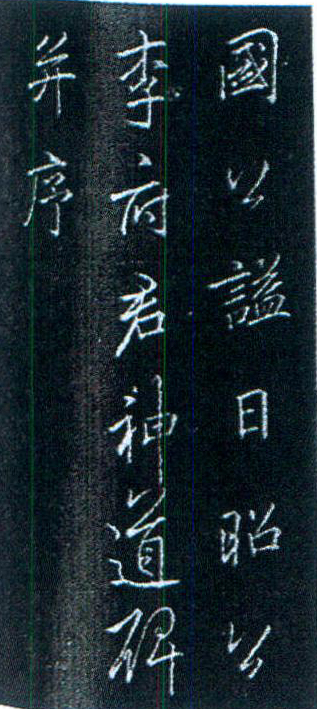 國公諡曰昭公
李府君神道碑
并序